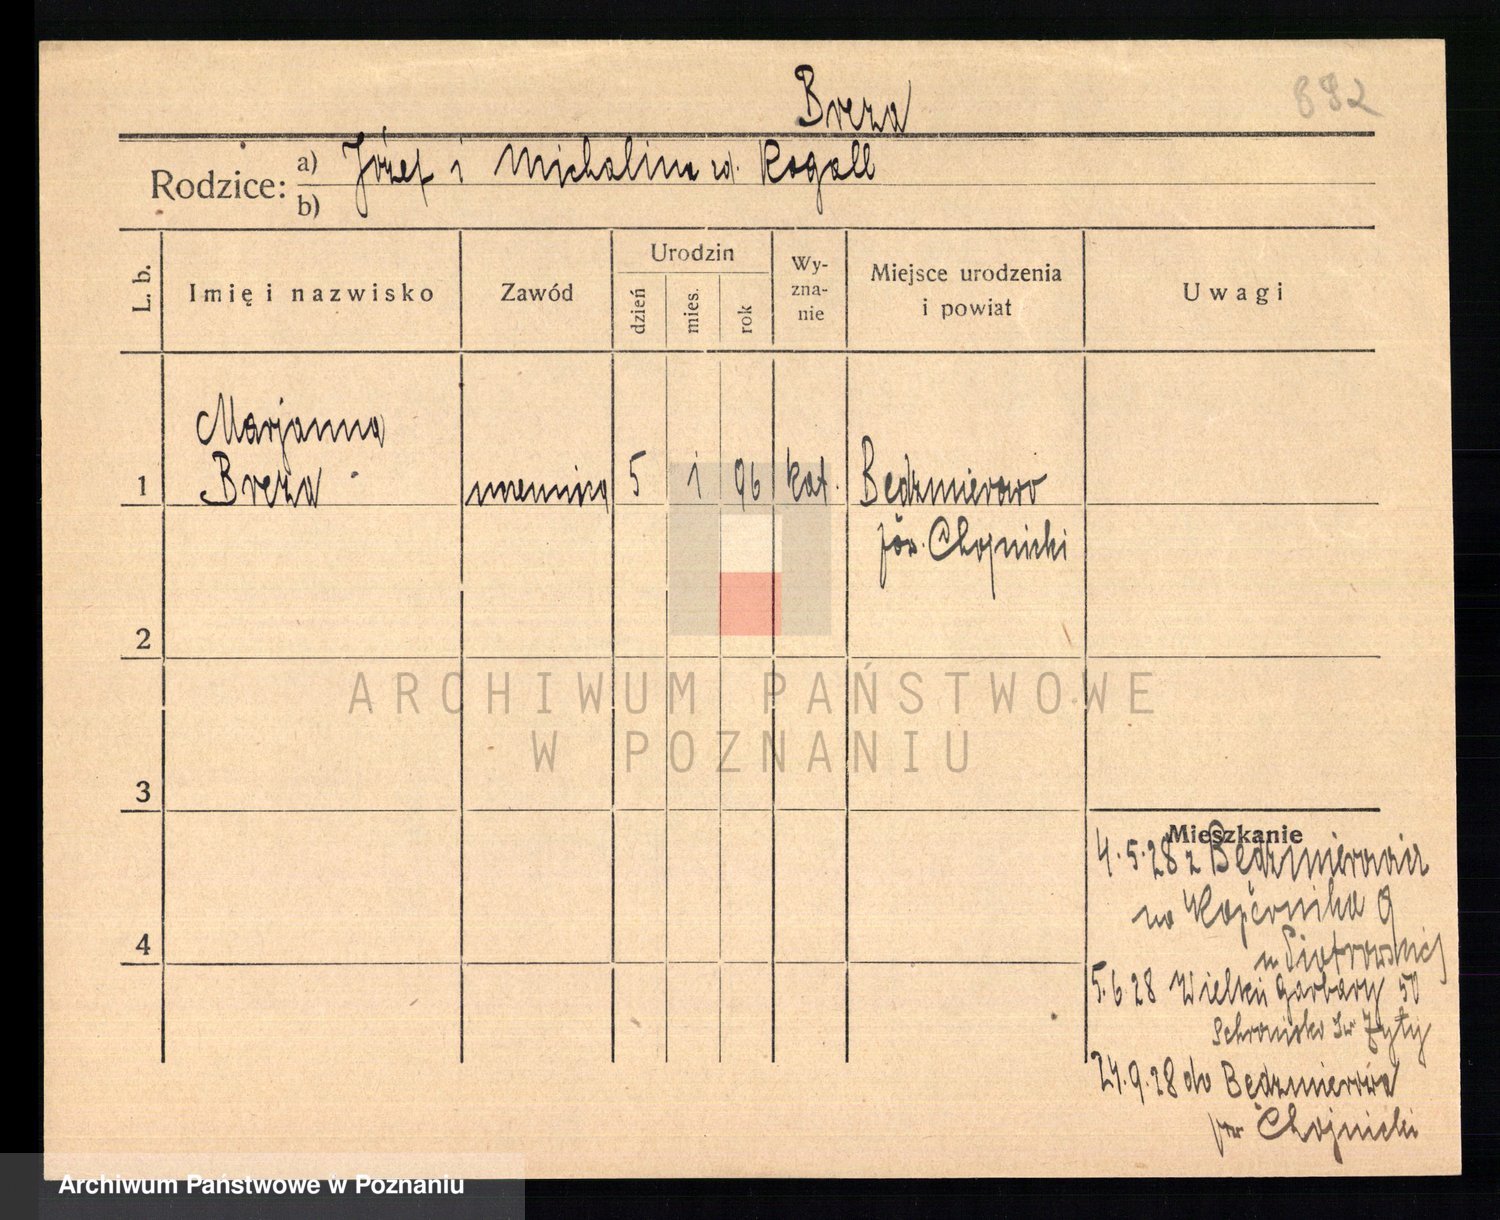 892
Breza
Rodzice: a) Józef i Michalina zd. Rogall
b)
L. b.
Imię i nazwisko
Zawód
Urodzin
dzień
mies.
rok
Wy-
zna-
nie
Miejsce urodzenia
i powiat
Uwagi
Marjanna
1 Breza 5 1 96 kat. Będzmierowo
pow. Chojnicki
2
3
4
Mieszkanie
4.5.28 z Będzmierowa
na Kopernika 9
u Piotrowskiej
5.6.28 Wielkie Garbary 50
Schronisko Św Zyty
24.9.28 do Będzmierowa
pow Chojnicki
ARCHIWUM PAŃSTWOWE
W POZNANIU
Archiwum Państwowe w Poznaniu